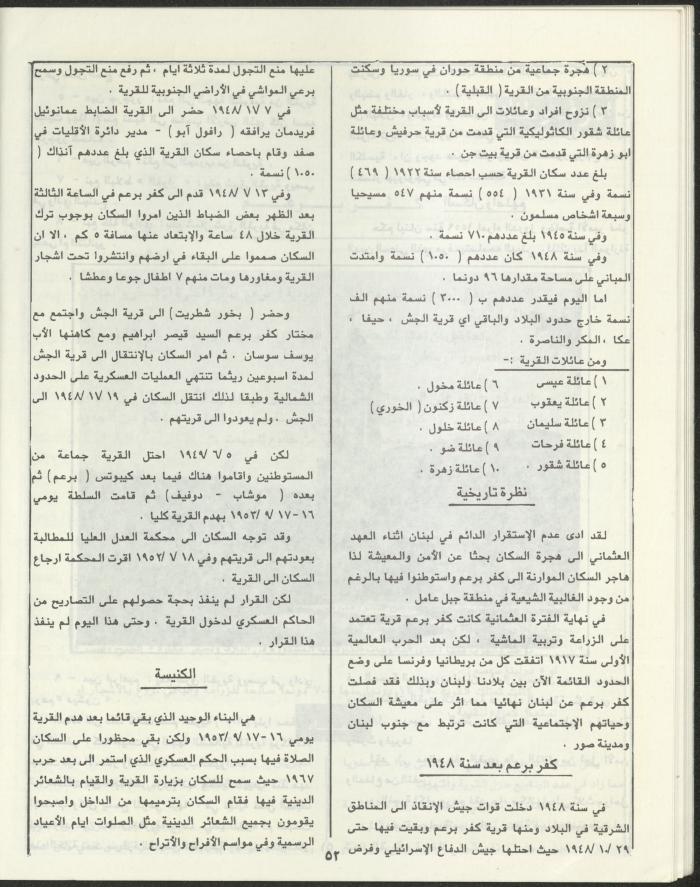 ٢ ) هجرة جماعية من منطقة حوران في سوريا وسكنت
المنطقة الجنوبية من القرية ( القبلية ) .
٣ ) نزوح افراد وعائلات الى القرية لأسباب مختلفة مثل
عائلة شقور الكاثوليكية التي قدمت من قرية حرفيش وعائلة
ابو زهرة التي قدمت من قرية بيت جن .
بلغ عدد سكان القرية حسب احصاء سنة ١٩٢٢ ( ٤٦٩ )
نسمة وفي سنة ١٩٣١ ( ٥٥٤ ) نسمة منهم ٥٤٧ مسيحيا
وسبعة اشخاص مسلمون .
وفي سنة ١٩٤٥ بلغ عددهم ٧١٠ نسمة .
وفي سنة ١٩٤٨ كان عددهم ( ١٠٥٠ ) نسمة وامتدت
المباني على مساحة مقدارها ٩٦ دونما .
اما اليوم فيقدر عددهم ب ( ٣٠٠٠ ) نسمة منهم الف
نسمة خارج حدود البلاد والباقي اي قرية الجش ، حيفا ،
عكا ، المكر والناصرة .
ومن عائلات القرية :-
١ ) عائلة عيسى ٦ ) عائلة مخول .
٢ ) عائلة يعقوب ٧ ) عائلة زكنون ( الخوري )
٣ ) عائلة سليمان ٨ ) عائلة خلول .
٤ ) عائلة فرحات ٩ ) عائلة ضو .
٥ ) عائلة شقور . ١٠ ) عائلة زهرة .
نظرة تاريخية
لقد ادى عدم الإستقرار الدائم في لبنان اثناء العهد
العثماني الى هجرة السكان بحثا عن الأمن والمعيشة لذا
هاجر السكان الموارنة الى كفر برعم واستوطنوا فيها بالرغم
من وجود الغالبية الشيعية في منطقة جبل عامل .
في نهاية الفترة العثمانية كانت كفر برعم قرية تعتمد
على الزراعة وتربية الماشية ، لكن بعد الحرب العالمية
الأولى سنة ١٩١٧ اتفقت كل من بريطانيا وفرنسا على وضع
الحدود القائمة الآن بين بلادنا ولبنان وبذلك فقد فصلت
كفر برعم عن لبنان نهائيا مما اثر على معيشة السكان
وحياتهم الإجتماعية التي كانت ترتبط مع جنوب لبنان
ومدينة صور .
كفر برعم بعد سنة ١٩٤٨
في سنة ١٩٤٨ دخلت قوات جيش الإنقاذ الى المناطق
الشرقية في البلاد ومنها قرية كفر برعم وبقيت فيها حتى
٢٩ /١٠ /١٩٤٨ حيث احتلها جيش الدفاع الإسرائيلي وفرض
عليها منع التجول لمدة ثلاثة ايام ، ثم رفع منع التجول وسمح
برعي المواشي في الأراضي الجنوبية للقرية .
في ٧ /١١ /١٩٤٨ حضر الى القرية الضابط عمانوئيل
فريدمان يرافقه ( رافول آبو ) - مدير دائرة الأقليات في
صفد وقام باحصاء سكان القرية الذي بلغ عددهم آنذاك (
١٠٥٠ ) نسمة .
وفي ١٣ /٧ /١٩٤٨ قدم الى كفر برعم في الساعة الثالثة
بعد الظهر بعض الضباط الذين امروا السكان بوجوب ترك
القرية خلال ٤٨ ساعة والإبتعاد عنها مسافة ٥ كم ، الا ان
السكان صمموا على البقاء في ارضهم وانتشروا تحت اشجار
القرية ومغاورها ومات منهم ٧ اطفال جوعا وعطشا .
وحضر ( بخور شطريت ) الى قرية الجش واجتمع مع
مختار كفر برعم السيد قيصر ابراهيم ومع كاهنها الأب
يوسف سوسان . ثم امر السكان بالإنتقال الى قرية الجش
لمدة اسبوعين ريثما تنتهي العمليات العسكرية على الحدود
الشمالية وطبقا لذلك انتقل السكان في ١٩ /١١ /١٩٤٨ الى
الجش . ولم يعودوا الى قريتهم .
لكن في ٥ /٦ /١٩٤٩ احتل القرية جماعة من
المستوطنين واقاموا هناك فيما بعد كيبوتس ( برعم ) ثم
بعده ( موشاب - دوفيف ) ثم قامت السلطة يومي
١٦-١٧ /٩ /١٩٥٣ بهدم القرية كليا .
وقد توجه السكان الى محكمة العدل العليا للمطالبة
بعودتهم الى قريتهم وفي ١٨ /٧ /١٩٥٢ اقرت المحكمة ارجاع
السكان الى القرية .
لكن القرار لم ينفذ بحجة حصولهم على التصاريح من
الحاكم العسكري لدخول القرية . وحتى هذا اليوم لم ينفذ
هذا القرار .
الكنيسة
هي البناء الوحيد الذي بقي قائما بعد هدم القرية
يومي ١٦-١٧ /٩ /١٩٥٣ ولكن بقي محظورا على السكان
الصلاة فيها بسبب الحكم العسكري الذي استمر الى بعد حرب
١٩٦٧ حيث سمح للسكان بزيارة القرية والقيام بالشعائر
الدينية فيها فقام السكان بترميمها من الداخل واصبحوا
يقومون بجميع الشعائر الدينية مثل الصلوات ايام الأعياد
الرسمية وفي مواسم الأفراح والأتراح .
٥٢